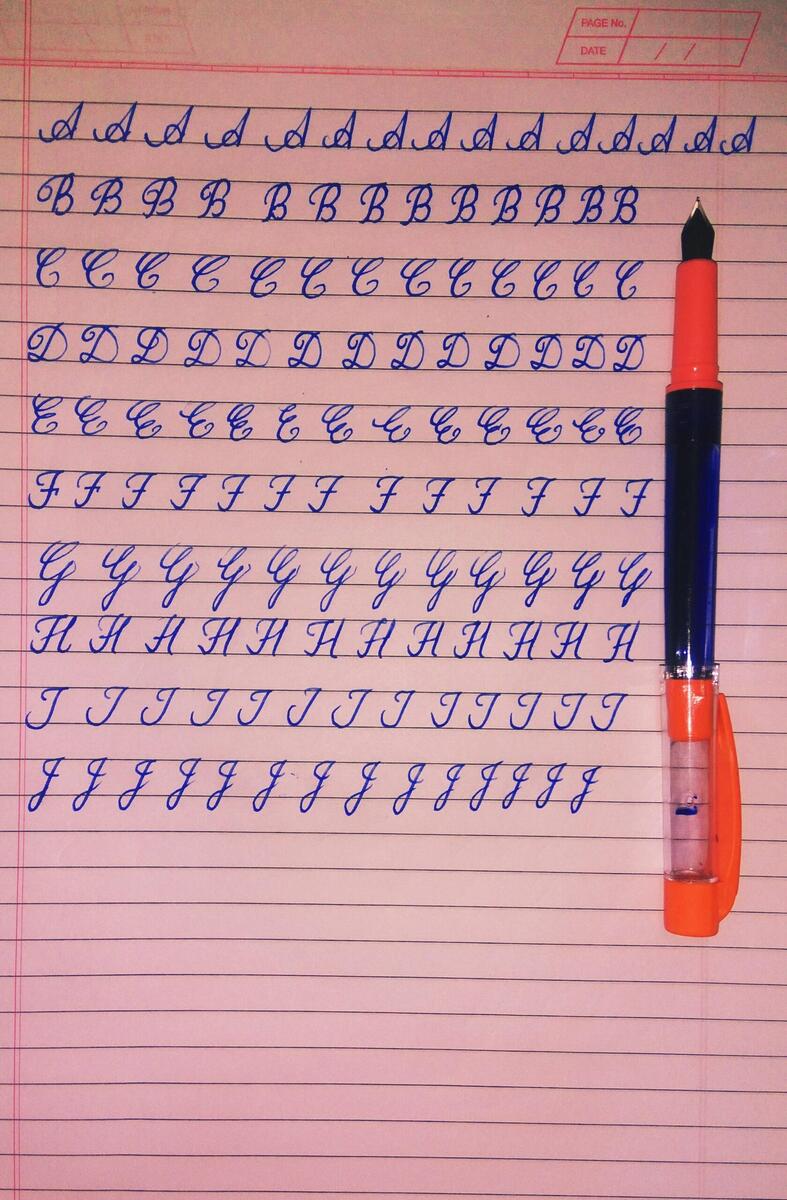 PAGE No.
DATE / /
A A A A A A A A A A A A A A A
B B B B B B B B B B B B B
C C C C C C C C C C C C C
D D D D D D D D D D D D D
E E E E E E E E E E E E E
F F F F F F F F F F F F F
G G G G G G G G G G G G
H H H H H H H H H H H H
I I I I I I I I I I I I I
J J J J J J J J J J J J J J